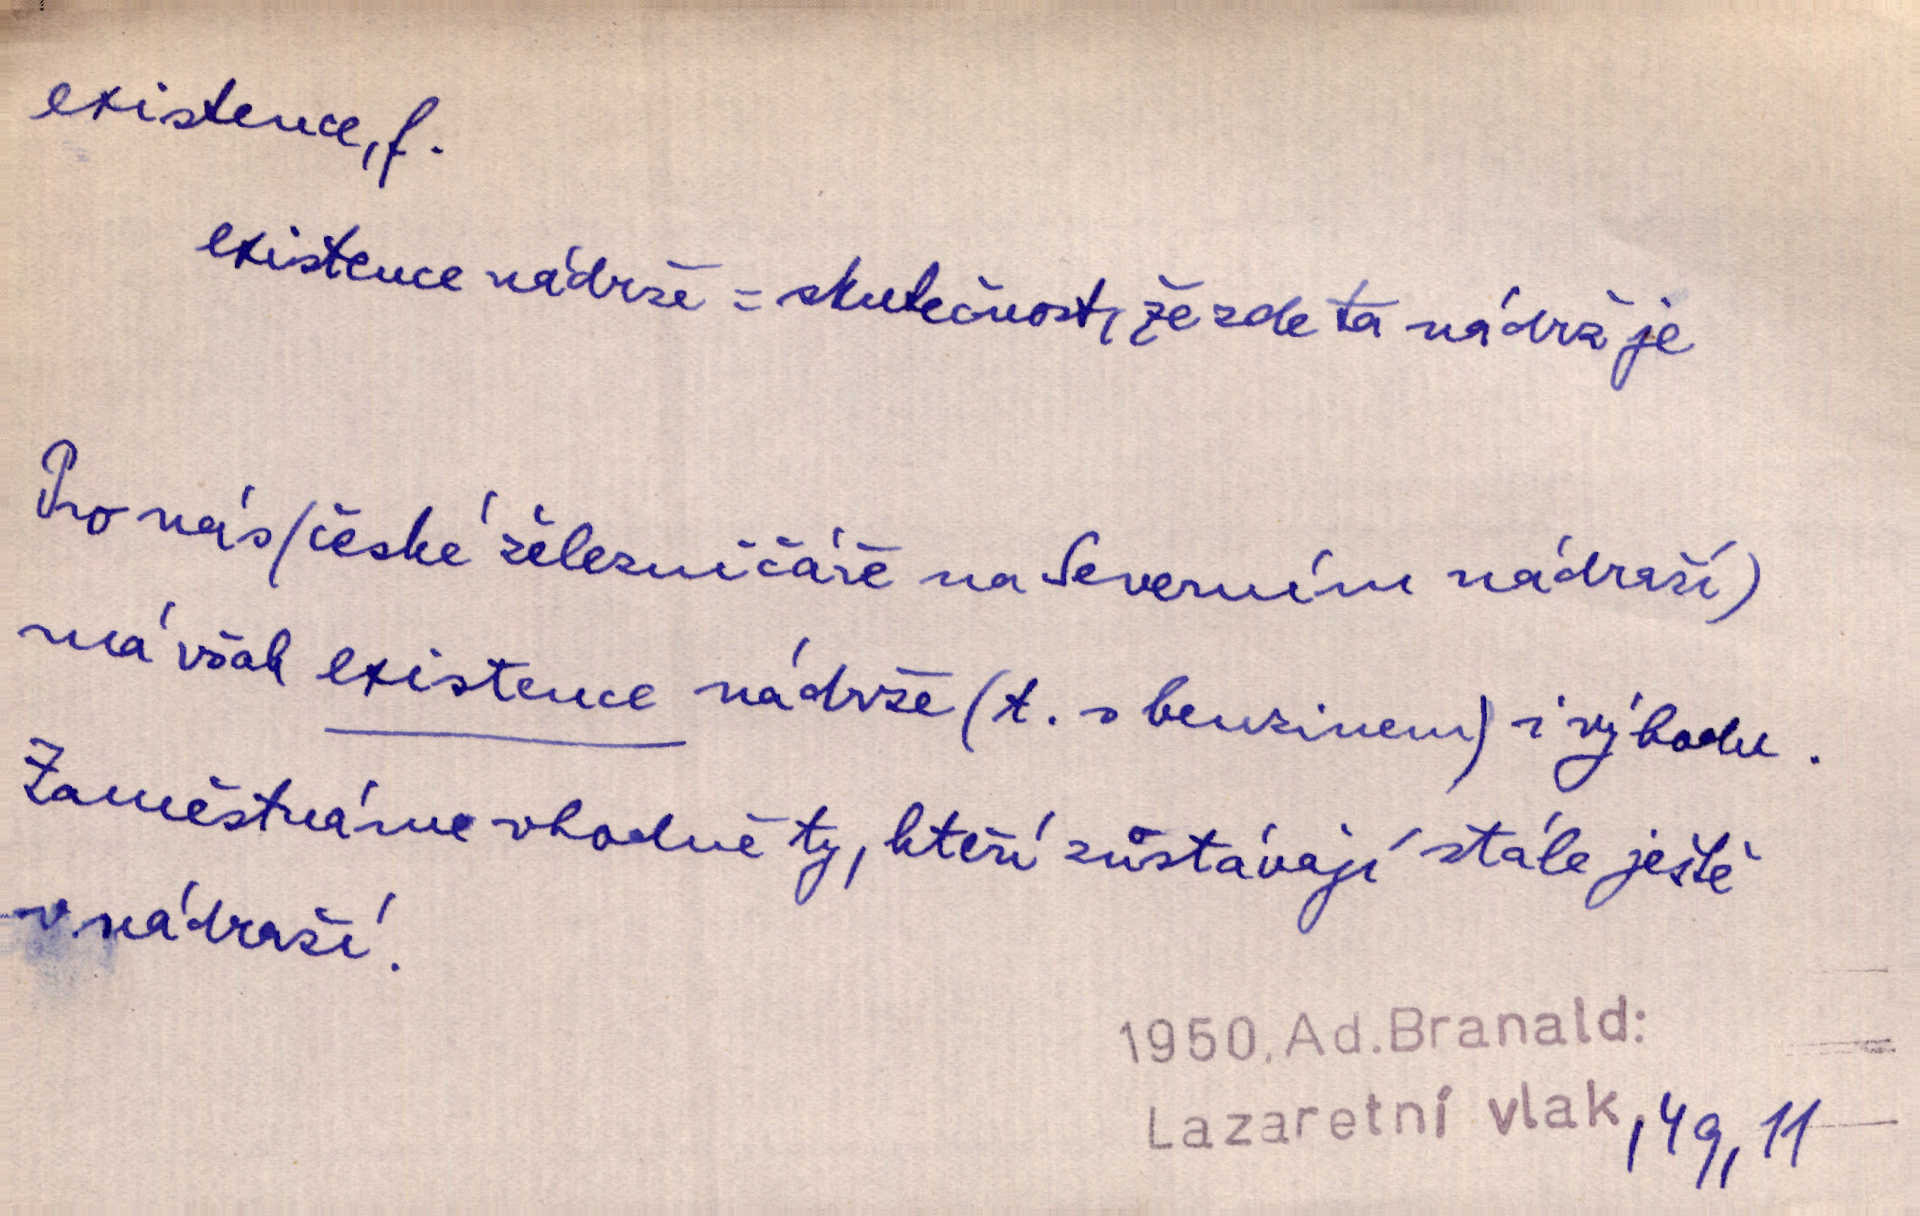 existence, f.
existence nádrže = skutečnost, že zde ta nádrž je
Pro nás (české železničáře na Severním nádraží)
má však existence nádrže (t. s benzinem) i výhodu.
Zaměstnáme vhodně ty, kteří zůstávají stále ještě
v nádraží.
1950, Ad. Branald:
Lazaretní vlak, 49, 11